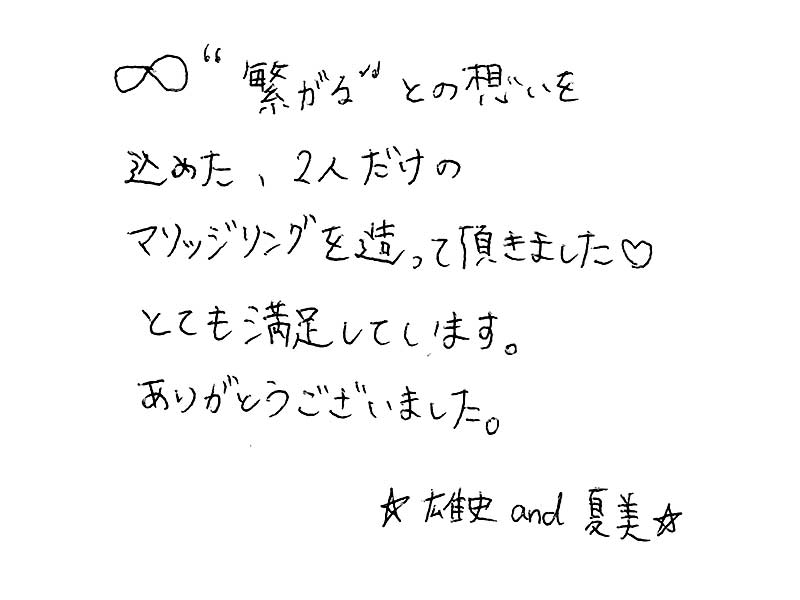 ∞“繋がる”との想いを
込めた、2人だけの
マリッジリングを造って頂きました♡
とても満足しています。
ありがとうございました。
☆雄史 and 夏美☆